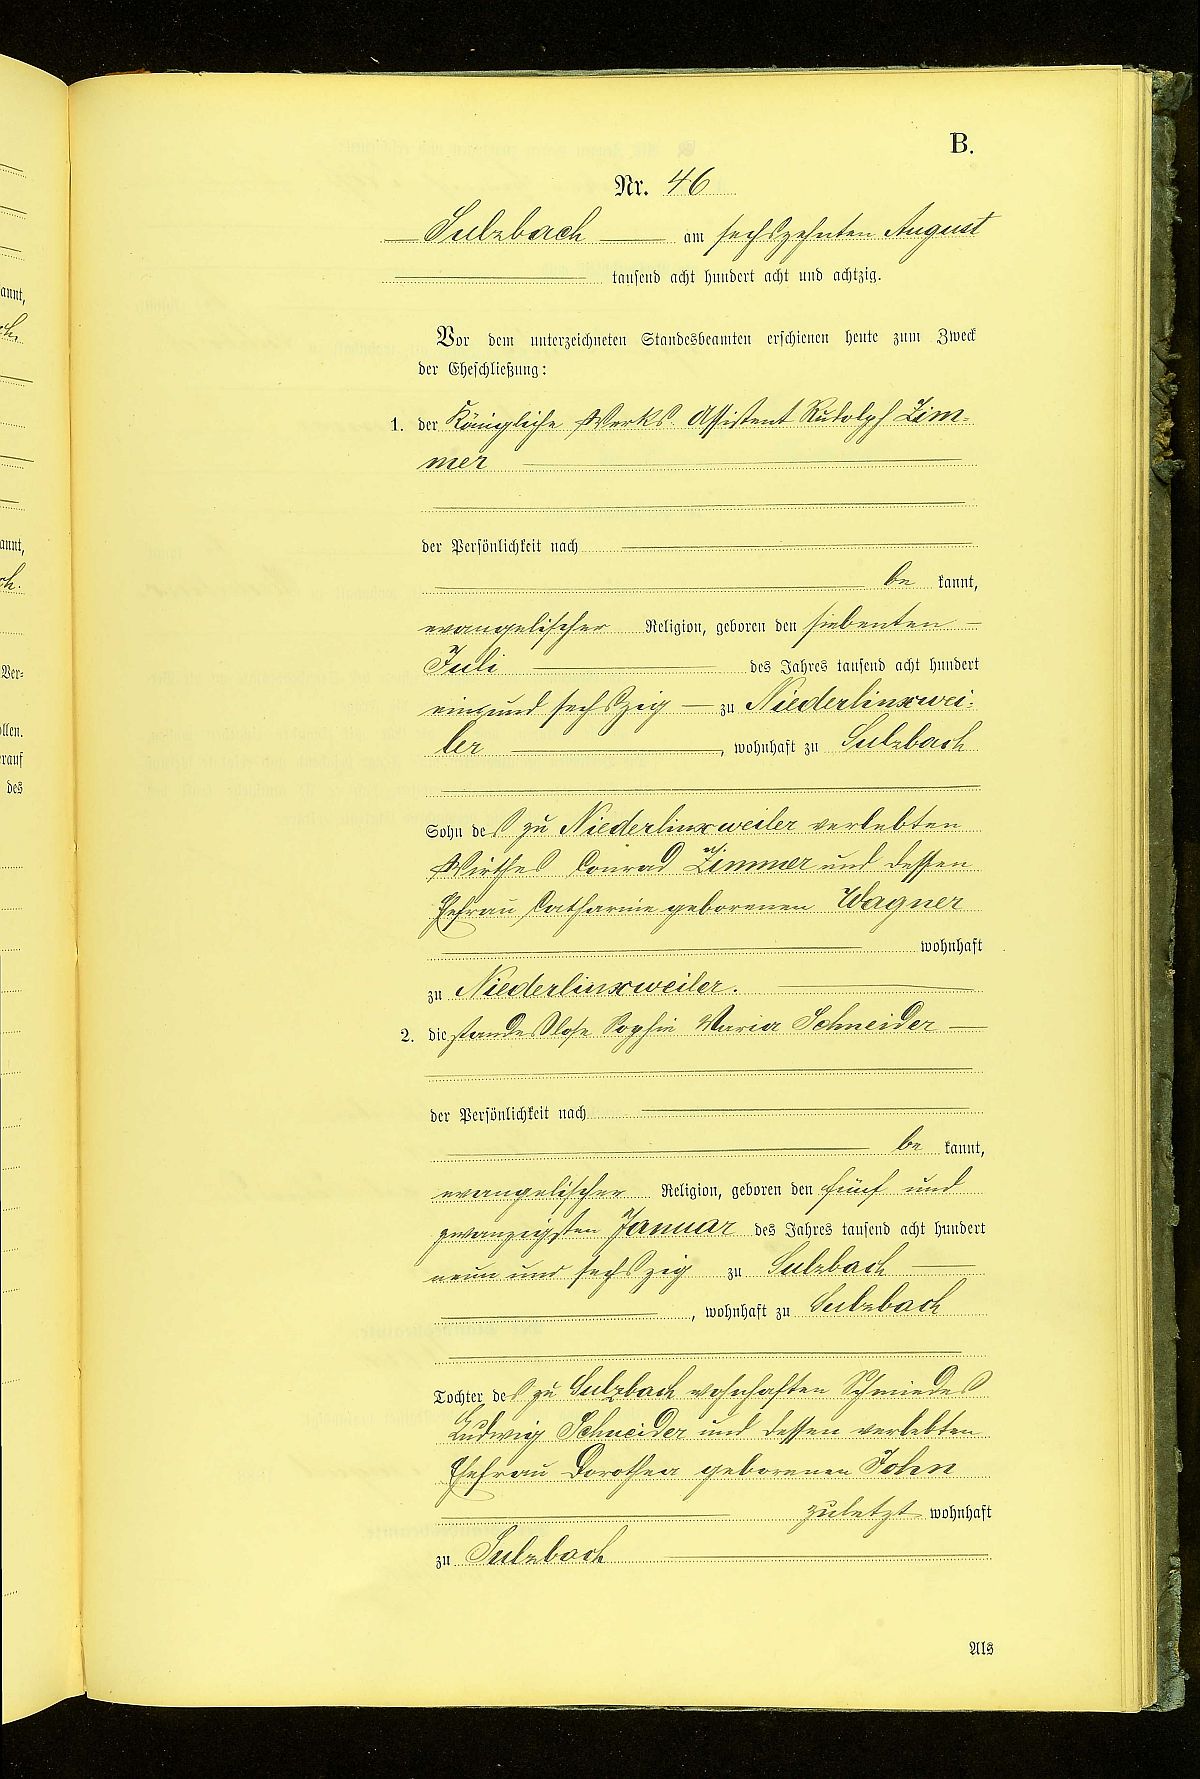 B.
Nr. 46
Sulzbach am sechszehnten August
tausend acht hundert acht und achtzig.
Vor dem unterzeichneten Standesbeamten erschienen heute zum Zweck
der Eheschließung:
1. der Königliche Werks-Assistent Rudolph Zim-
mer
der Persönlichkeit nach
be kannt,
evangelischer Religion, geboren den siebenten
Juli des Jahres tausend acht hundert
ein und sechszig zu Niederlinxwei-
ler, wohnhaft zu Sulzbach
Sohn des zu Niederlinxweiler verlebten
Wirthes Conrad Zimmer und dessen
Ehefrau Catharine geborenen Wagner
wohnhaft
zu Niederlinxweiler.
2. die standeslose Sophie Maria Schneider
der Persönlichkeit nach
be kannt,
evangelischer Religion, geboren den fünf und
zwanzigsten Januar des Jahres tausend acht hundert
neun und sechszig zu Sulzbach
, wohnhaft zu Sulzbach
Tochter des zu Sulzbach wohnhaften Schmiedes
Ludwig Schneider und dessen verlebten
Ehefrau Dorothea geborenen John
zuletzt wohnhaft
zu Sulzbach
Als
annt,
annt,
ch.
Ver-
ollen.
rauf
des